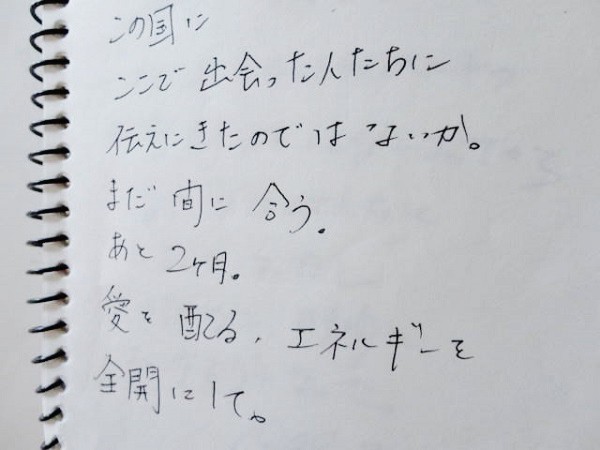 この国に
ここで出会った人たちに
伝えにきたのではないか。
まだ間に合う。
あと2ヶ月。
愛を配る、エネルギーを
全開にして。